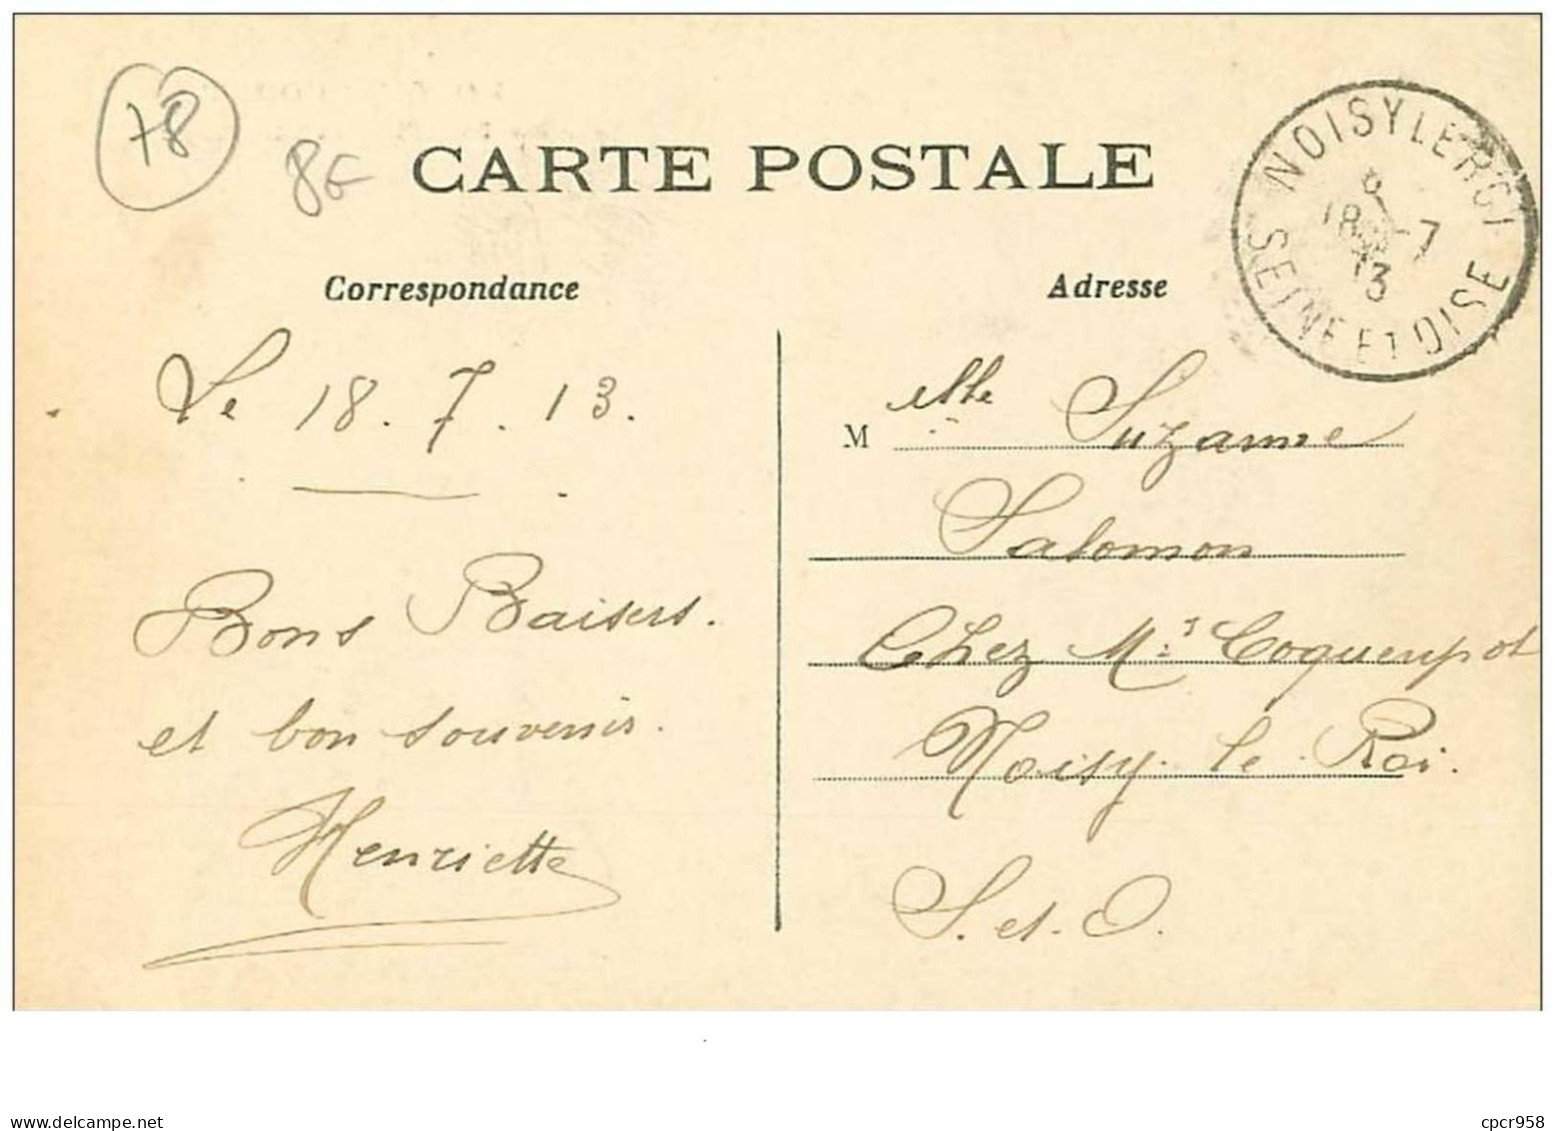 78
8€
CARTE POSTALE
NOISY LE ROI
18-7
13
SEINE ET OISE
Correspondance
Adresse
Le 18.7.13.
Bons Baisers.
et bon souvenir.
Henriette
M elle Suzanne
Salomon
Chez Mrs Coquenpot
Noisy-le-Roi.
S.et.O.
delcampe.net
cpcr958